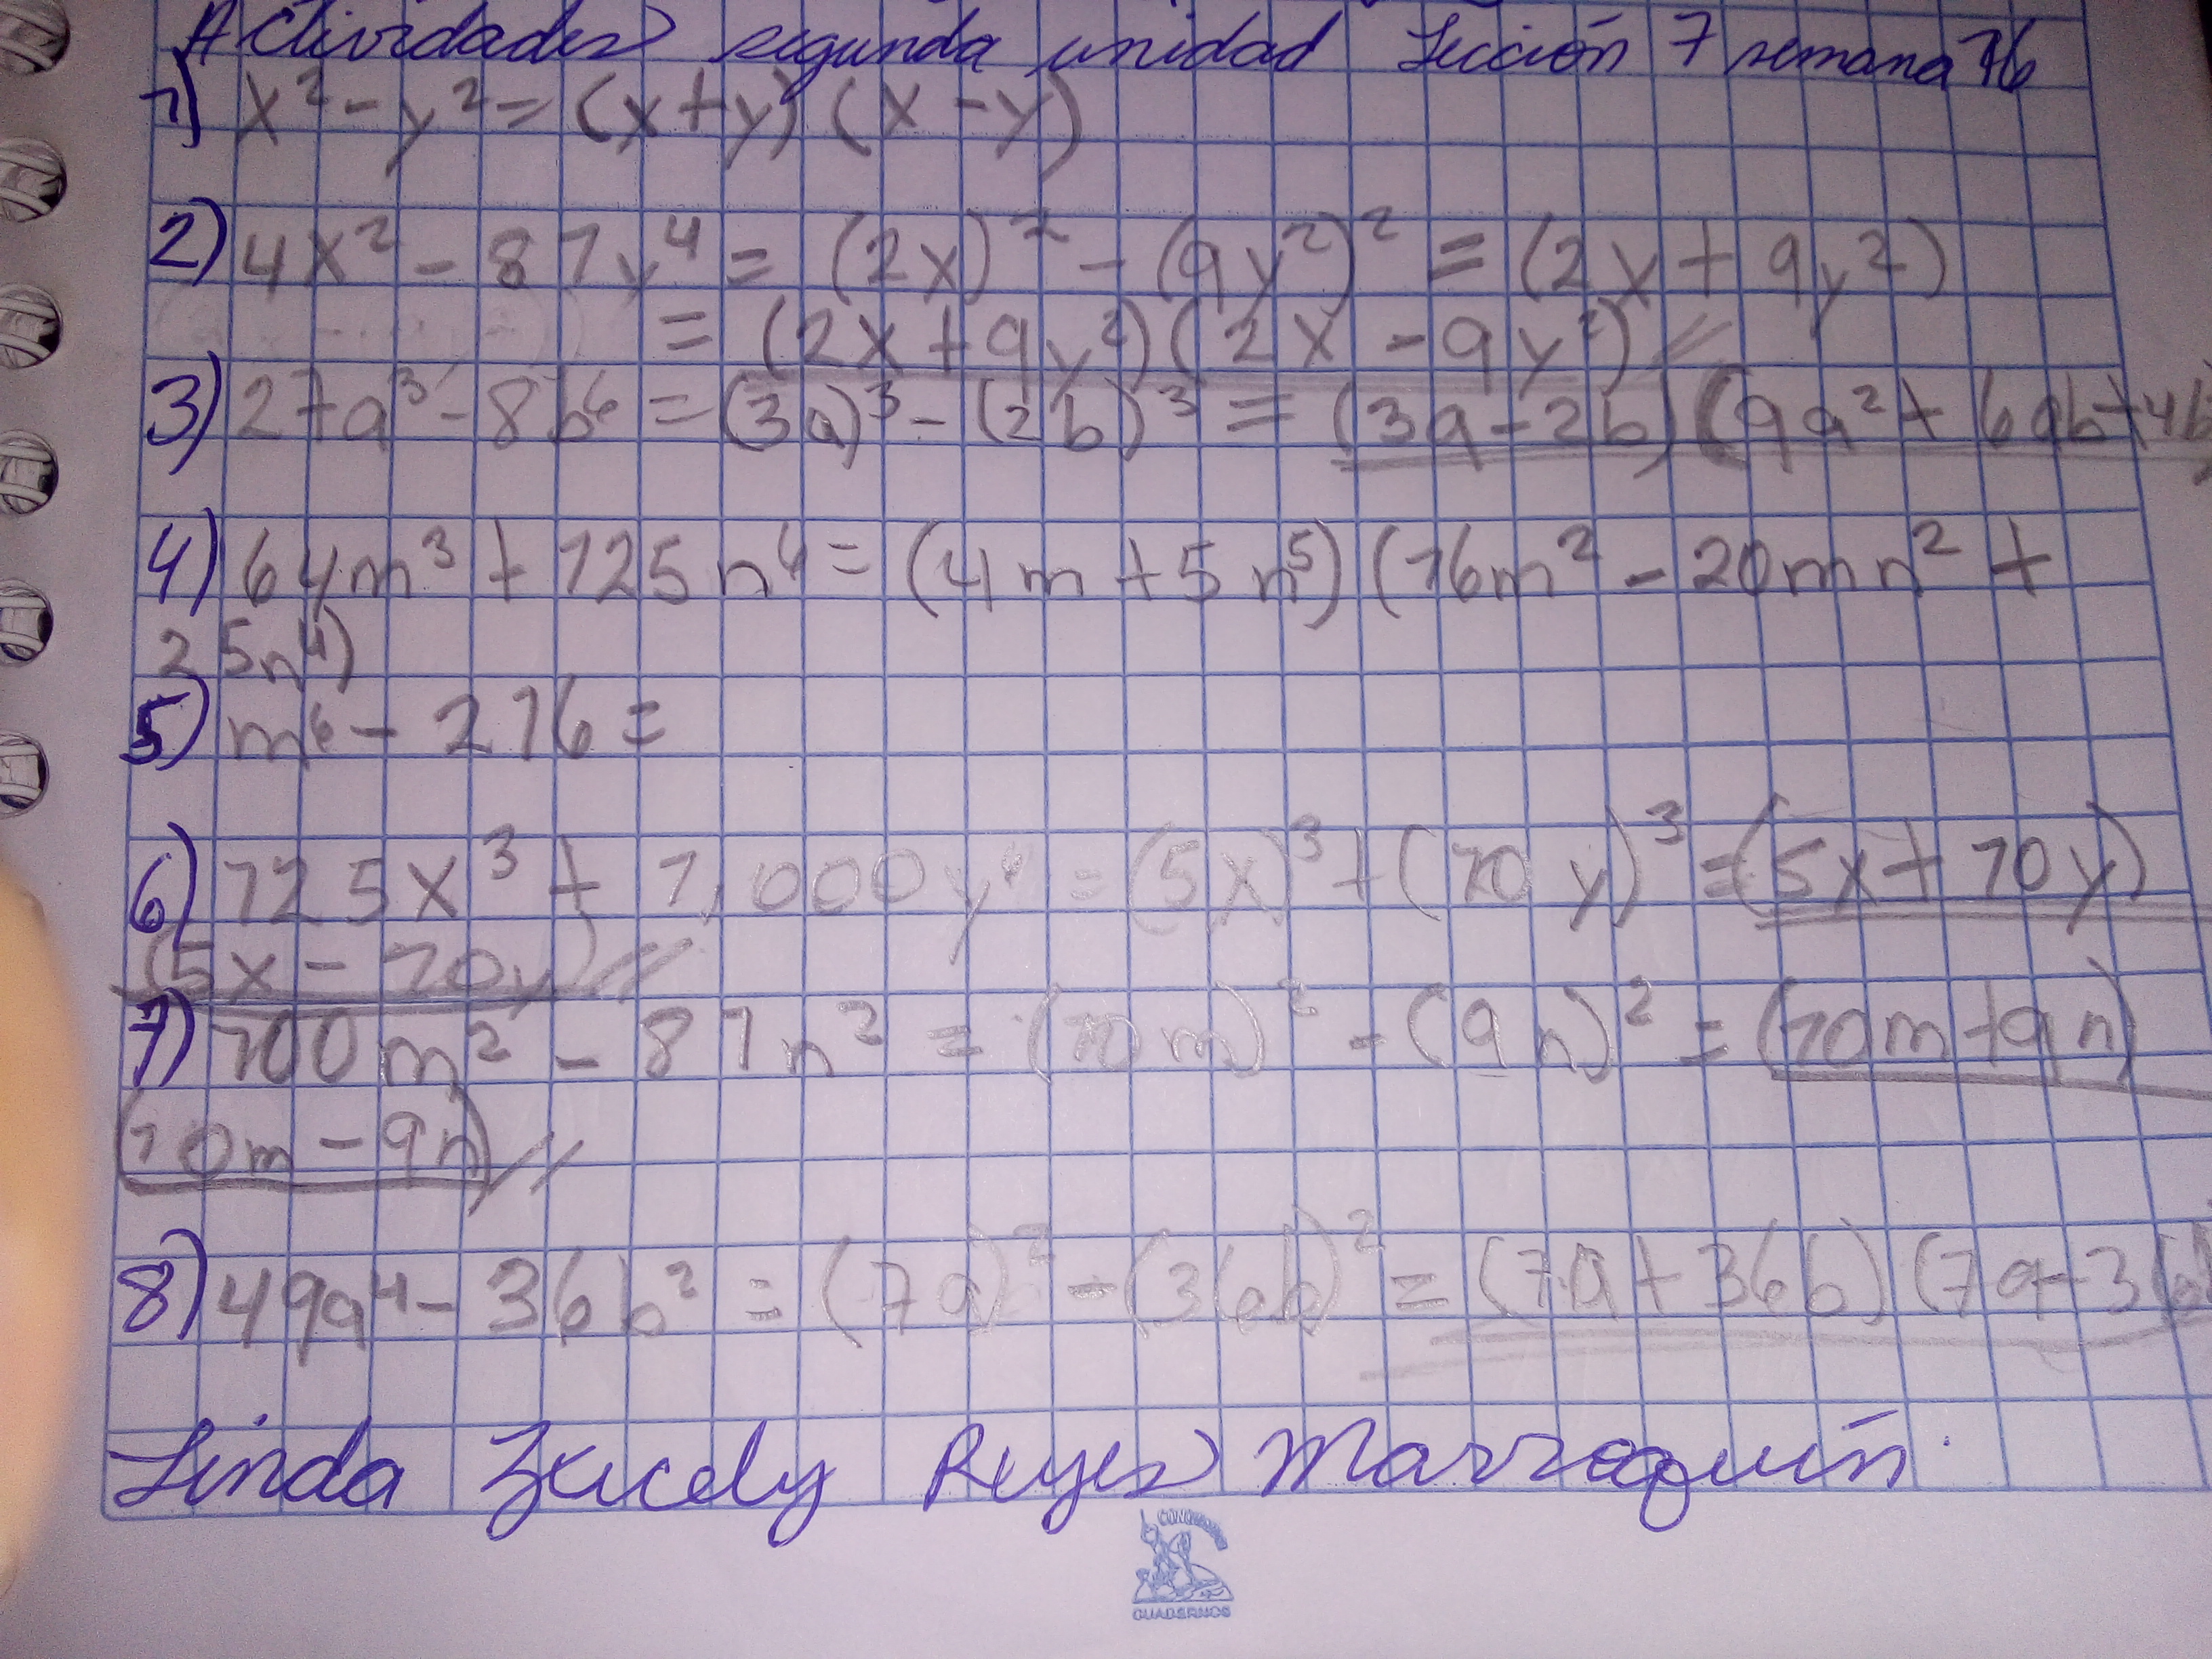 Actividades segunda unidad Lección 7 semana 16
1) x² - y² = (x+y) (x - y)
2) 4x² - 81y⁴ = (2x)² - (9y²)² = (2x + 9y²)
= (2x + 9y²) (2x - 9y²) //
3) 27a³ - 8b⁶ = (3a)³ - (2b)³ = (3a - 2b) (9a² + 6ab + 4b
4) 64m³ + 125n⁶ = (4m + 5n⁵) (16m² - 20mn² +
25n⁴)
5) m⁶ - 216 =
6) 125x³ + 1,000y⁶ = (5x)³ + (10y)³ = (5x + 10y)
(5x - 10y) //
7) 100m² - 81n² = (10m)² - (9n)² = (10m + 9n)
(10m - 9n) //
8) 49a⁴ - 36b² = (7a)² - (36b)² = (7a + 36b) (7a - 36b)
Linda Zucely Reyes Marroquín.
CONQUISTADOR
CUADERNOS